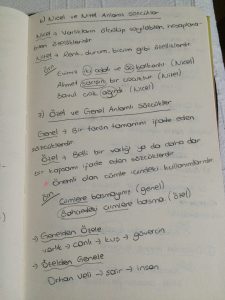 6) Nicel ve Nitel Anlamlı Sözcükler
Nicel → Varlıkların ölçülüp sayılabilen, hesaplana-
bilen özellikleridir.
Nitel → Renk, durum, biçim gibi özelliklerdir.
iki odalı ve
Ahmet şaşkın bir çocuktur. (Nitel)
çok ağırdı (Nicel)
7) Özel ve Genel Anlamlı Sözcükler
Genel → Bir türün tamamını ifade eden
sözcüklerdir.
Özel → Belli bir varlığı ya da daha dar
bir kapsamı ifade eden sözcüklerdir.
* Önemli olan cümle içindeki kullanımlarıdır.
Çimlere basmayınız (genel)
Bahçedeki çimlere basma. (özel)
→ Genelden Özele
varlık → canlı → kuş → güvercin
→ Özelden Genele
Orhan Veli → şair → insan